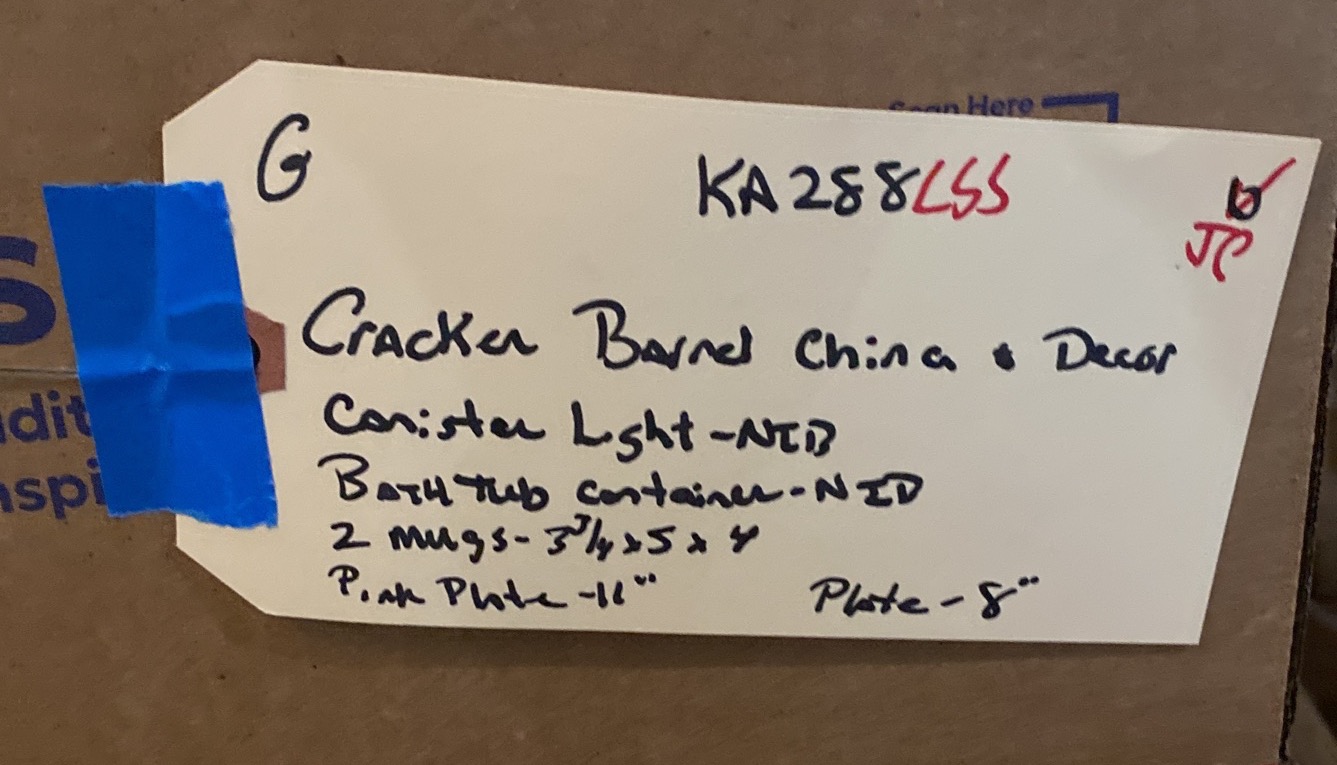 Scan Here
G
KA288LSS
JP
S
dit
nspi
Cracker Barrel China + Decor
Canister Light-NIB
BATH Tub container-NIB
2 mugs-3 3/4 x 5 x 4
Pink Plate-11" Plate-8"